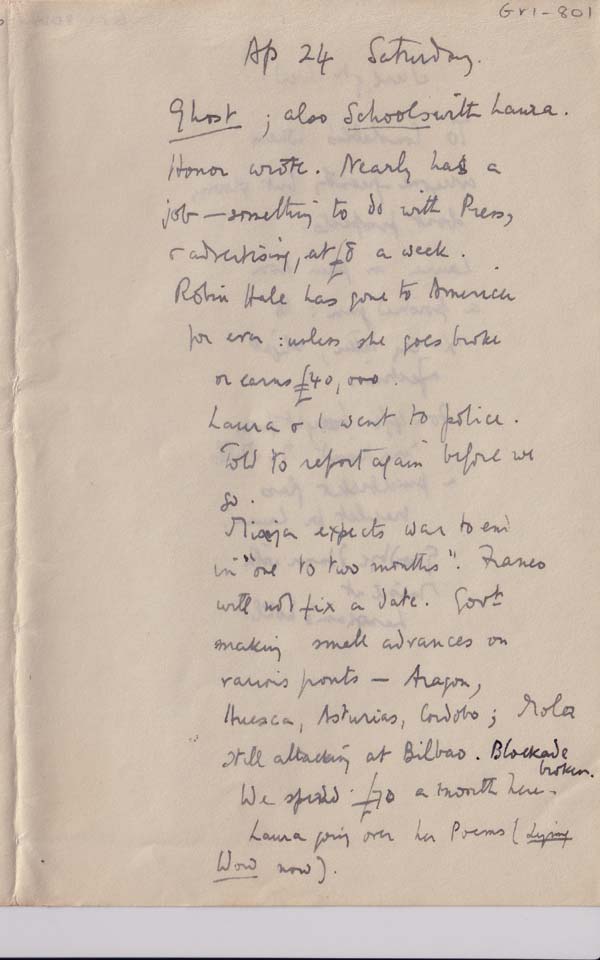 Gr1-801
Ap 24 Saturday.
Ghost ; also Schools with Laura.
Honor wrote. Nearly has a
job — something to do with Press,
& advertising, at £8 a week.
Robin Hale has gone to America
for ever : unless she goes broke
or earns £40,000.
Laura & I went to police.
Told to report again before we
go.
Miaja expects war to end
in "one to two months". Franco
will not fix a date. Govt
making small advances on
various fronts — Aragon,
Huesca, Asturias, Cordoba ; Mola
still attacking at Bilbao. Blockade
broken.
We spend £70 a month here.
Laura going over her Poems (
now).